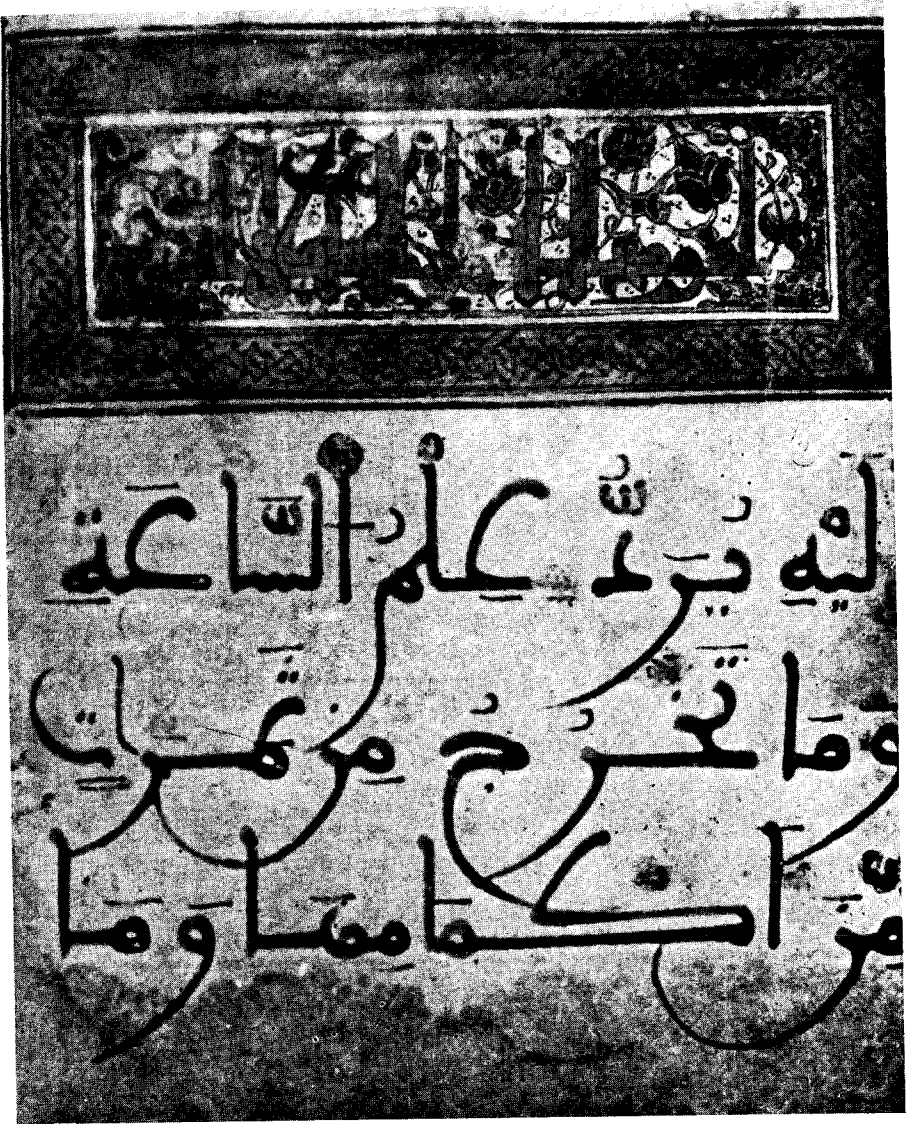 لَيْهِ يُرَدُّ عِلْمُ السَّاعَةِ
وَمَا تَخْرُجُ مِن ثَمَرَاتٍ
مِّنْ اَكْمَامِهَا وَمَا